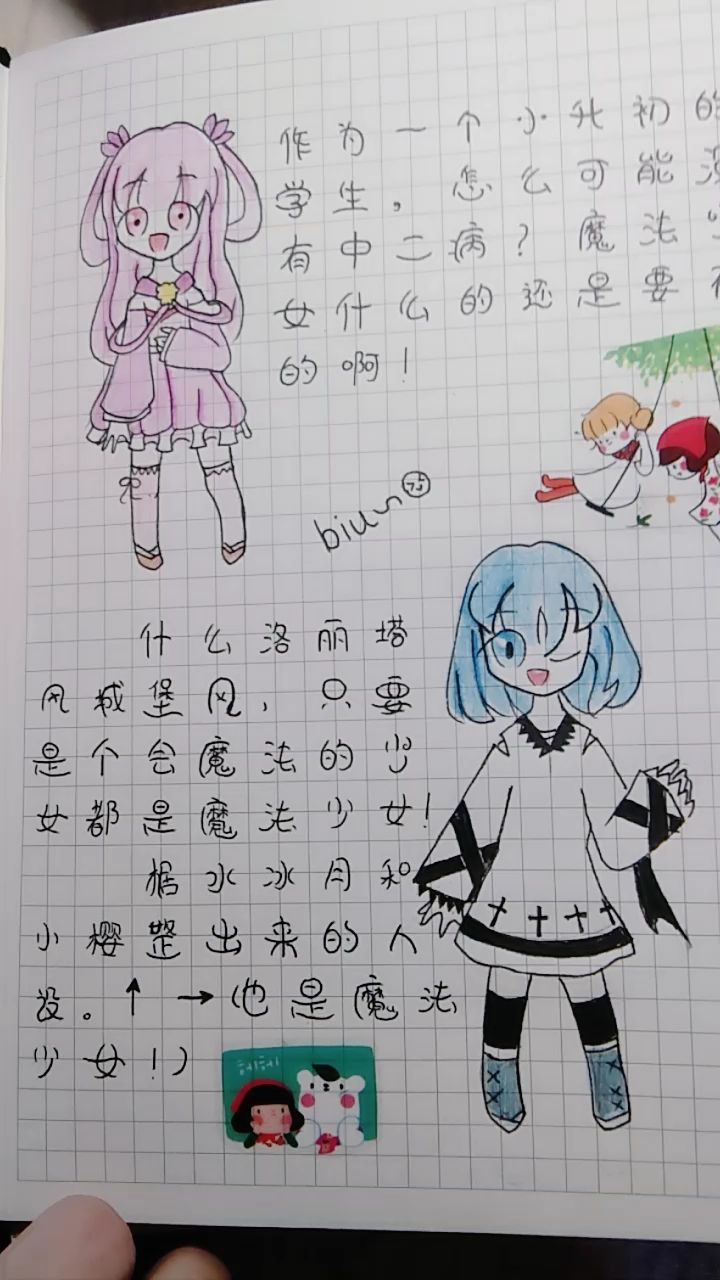 作为一个小升初的
学生，怎么可能没
有中二病？魔法少
女什么的还是要有
的啊！
biu~
什么洛丽塔
风城堡风，只要
是个会魔法的少
女都是魔法少女！
据水冰月和
小樱整出来的人
设。↑ →（也是魔法
少女！）